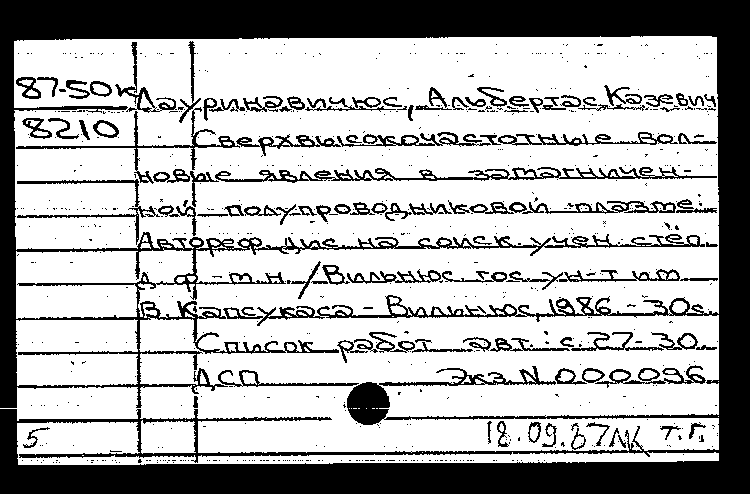 87-50к Лауринавичюс, Альбертас Казевич
8210 Сверхвысокочастотные вол-
новые явления в замагничен-
ной полупроводниковой плазме:
Автореф. дис. на соиск. учен. степ.
д. ф.-м.н. / Вильнюс. гос. ун-т им.
В. Капсукаса - Вильнюс, 1986. - 30с.
Список работ авт.: с. 27-30.
ДСП Экз. N 000096
5 18.09.87 Т.Г.